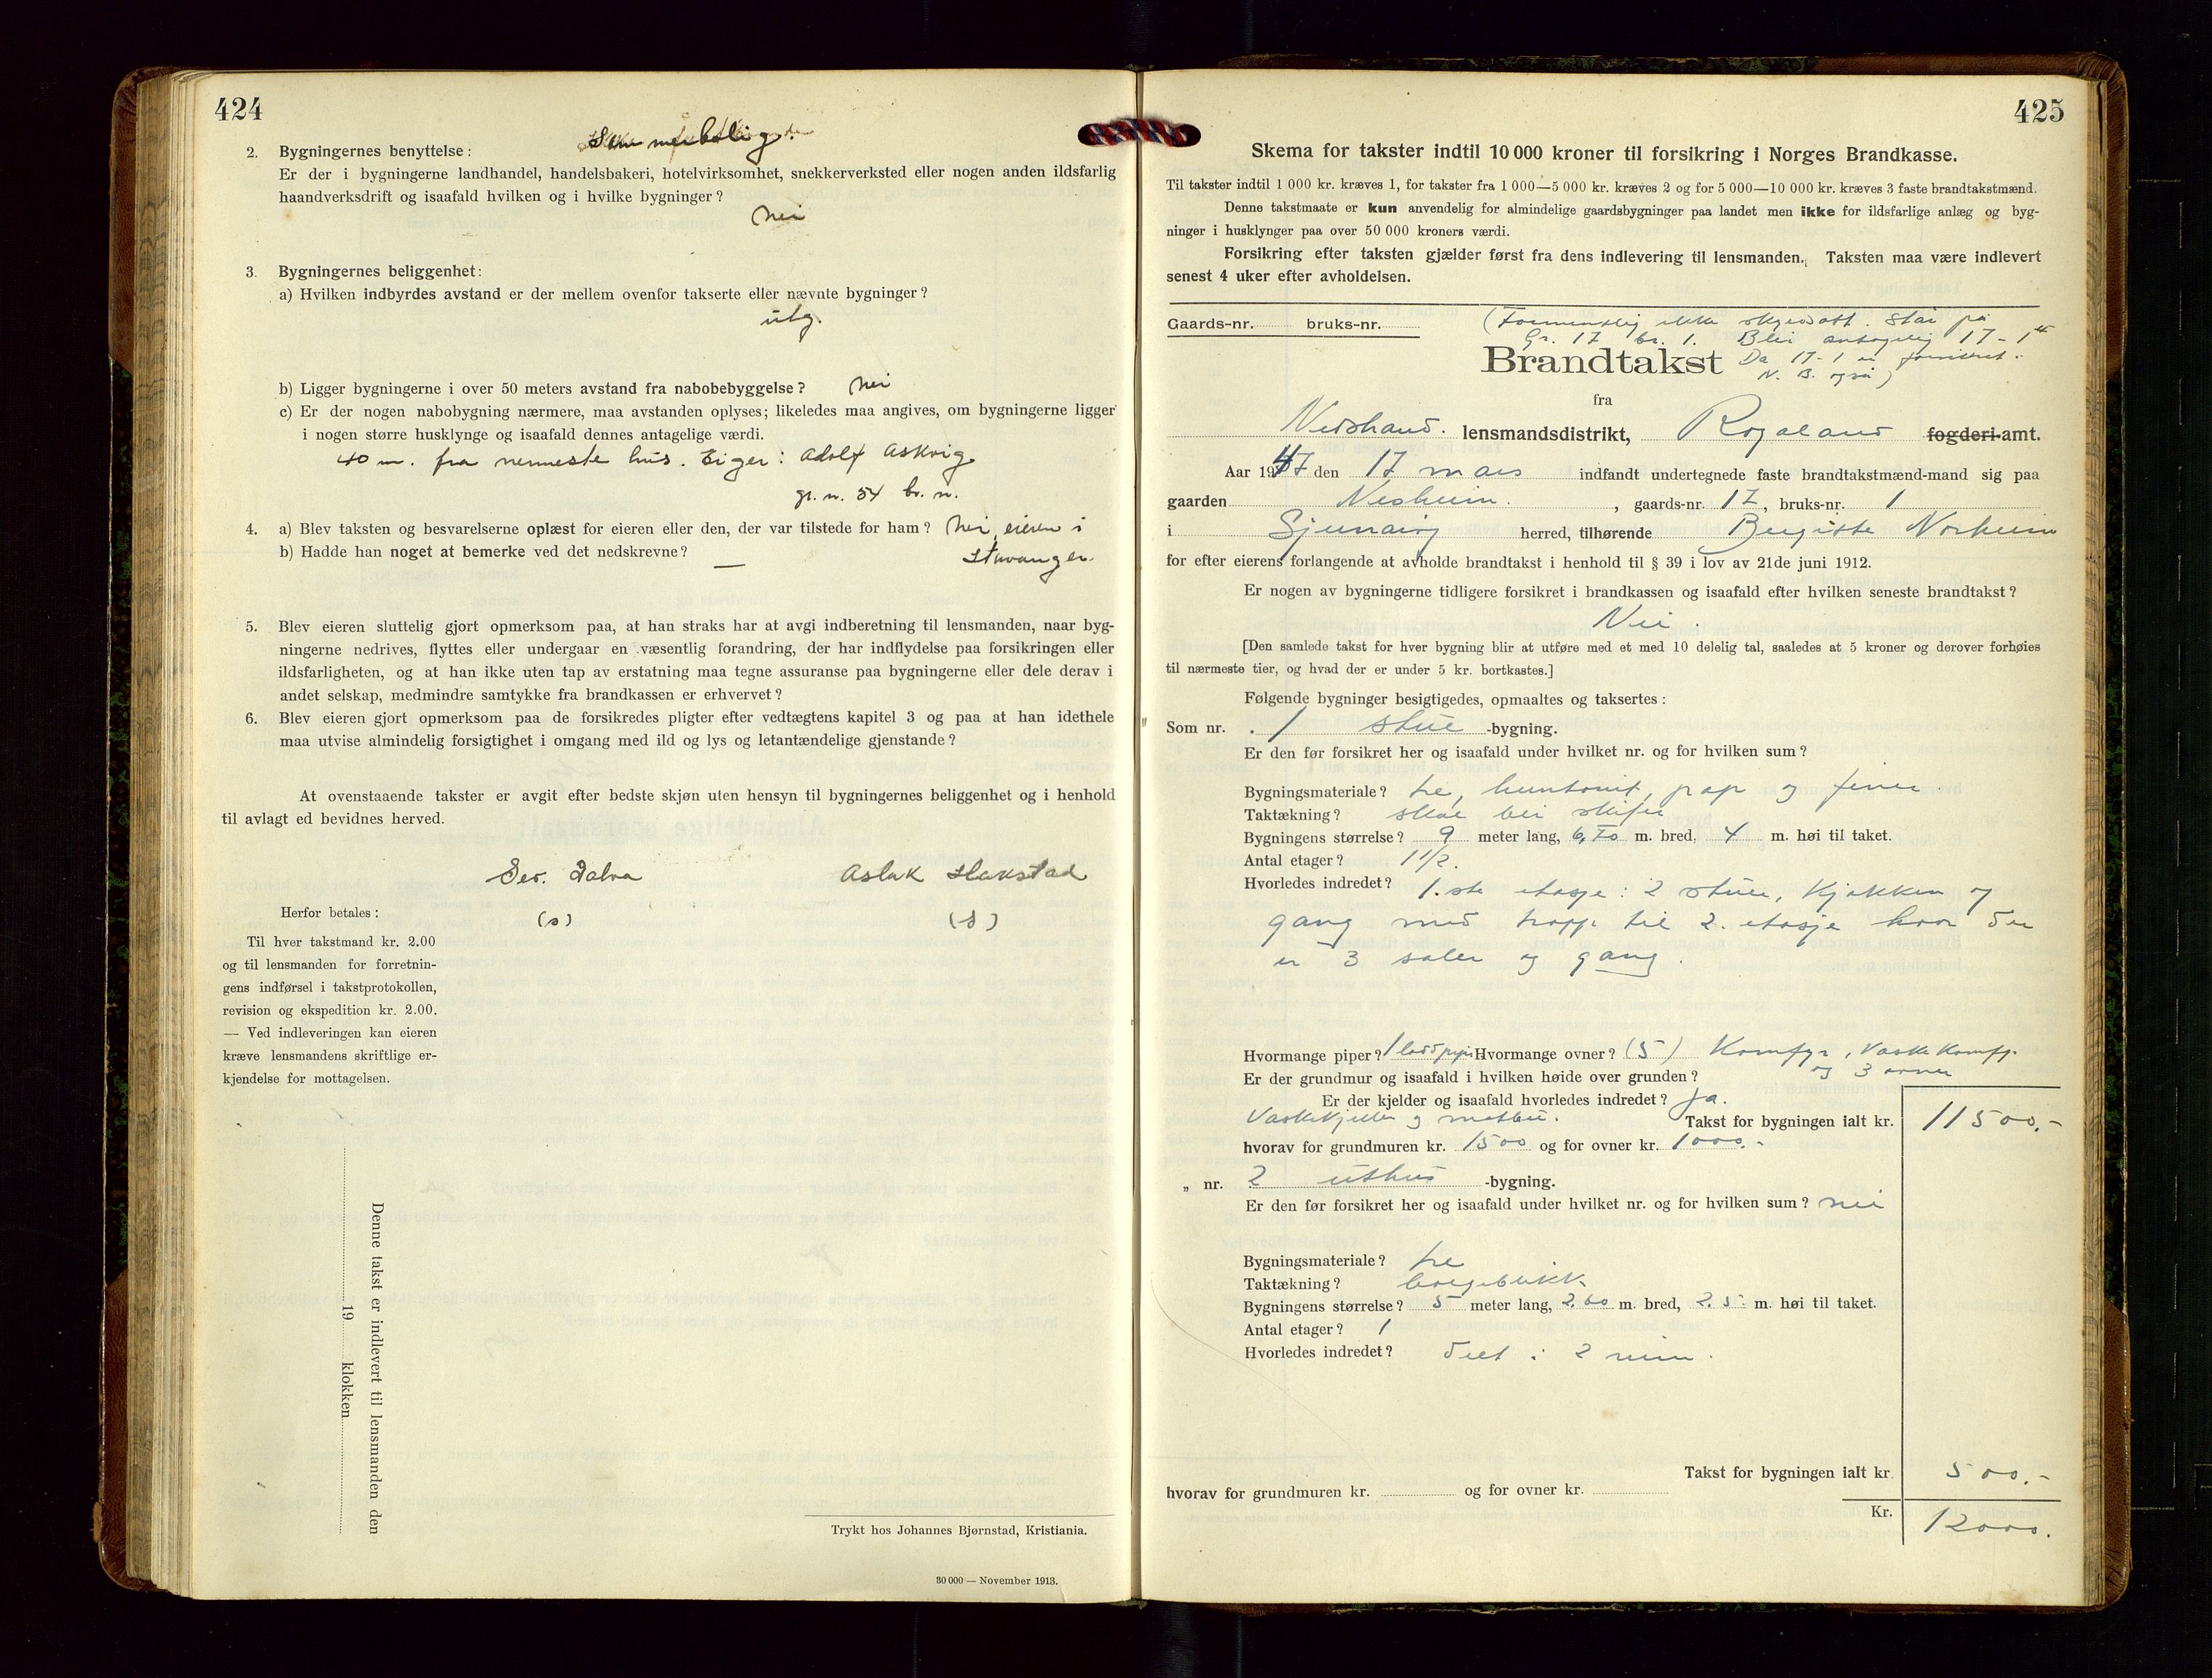 424
2. Bygningernes benyttelse:
Er der i bygningerne landhandel, handelsbakeri, hotelvirksomhet, snekkerverksted eller nogen anden ildsfarlig
haandverksdrift og isaafald hvilken og i hvilke bygninger?
Nei
3. Bygningernes beliggenhet:
a) Hvilken indbyrdes avstand er der mellem ovenfor takserte eller nævnte bygninger?
utg.
b) Ligger bygningerne i over 50 meters avstand fra nabobebyggelse? Nei
c) Er der nogen nabobygning nærmere, maa avstanden oplyses; likeledes maa angives, om bygningerne ligger
i nogen større husklynge og isaafald dennes antagelige værdi.
40 m. fra nermeste hus. Eiger: Adolf Askvig
gr. n. 54 br. n.
4. a) Blev taksten og besvarelserne oplæst for eieren eller den, der var tilstede for ham? Nei, eieren i
b) Hadde han noget at bemerke ved det nedskrevne? — Stavanger.
5. Blev eieren sluttelig gjort opmerksom paa, at han straks har at avgi indberetning til lensmanden, naar byg-
ningerne nedrives, flyttes eller undergaar en væsentlig forandring, der har indflydelse paa forsikringen eller
ildsfarligheten, og at han ikke uten tap av erstatning maa tegne assuranse paa bygningerne eller dele derav i
andet selskap, medmindre samtykke fra brandkassen er erhvervet?
6. Blev eieren gjort opmerksom paa de forsikredes pligter efter vedtægtens kapitel 3 og paa at han idethele
maa utvise almindelig forsigtighet i omgang med ild og lys og letantændelige gjenstande?
At ovenstaaende takster er avgit efter bedste skjøn uten hensyn til bygningernes beliggenhet og i henhold
til avlagt ed bevidnes herved.
Aslak Hakstad
(s) (s)
Herfor betales:
Til hver takstmand kr. 2.00
og til lensmanden for forretnin-
gens indførsel i takstprotokollen,
revision og ekspedition kr. 2.00.
— Ved indleveringen kan eieren
kræve lensmandens skriftlige er-
kjendelse for mottagelsen.
Denne takst er indlevert til lensmanden den
19 klokken
Trykt hos Johannes Bjørnstad, Kristiania.
30 000 — November 1913.
425
Skema for takster indtil 10 000 kroner til forsikring i Norges Brandkasse.
Til takster indtil 1 000 kr. kræves 1, for takster fra 1 000—5 000 kr. kræves 2 og for 5 000—10 000 kr. kræves 3 faste brandtakstmænd.
Denne takstmaate er kun anvendelig for almindelige gaardsbygninger paa landet men ikke for ildsfarlige anlæg og byg-
ninger i husklynger paa over 50 000 kroners værdi.
Forsikring efter taksten gjælder først fra dens indlevering til lensmanden. Taksten maa være indlevert
senest 4 uker efter avholdelsen.
Gaards-nr. bruks-nr.
(Formentlig ikke skyldsatt. Står på
Gr. 17 br. 1. Blir antagelig 17-1
Brandtakst Da 17-1 er forsikret.
N. B. også)
fra
Nedstrand. lensmandsdistrikt, Rogaland fogderi-amt.
Aar 1947 den 17 mars indfandt undertegnede faste brandtakstmænd-mand sig paa
gaarden Nesheim. , gaards-nr. 17, bruks-nr. 1
i Sjernarøy herred, tilhørende Birgitte Norheim
for efter eierens forlangende at avholde brandtakst i henhold til § 39 i lov av 21de juni 1912.
Er nogen av bygningerne tidligere forsikret i brandkassen og isaafald efter hvilken seneste brandtakst?
Nei.
[Den samlede takst for hver bygning blir at utføre med et med 10 delelig tal, saaledes at 5 kroner og derover forhøies
til nærmeste tier, og hvad der er under 5 kr. bortkastes.]
Følgende bygninger besigtigedes, opmaaltes og taksertes:
Som nr. 1 stue -bygning.
Er den før forsikret her og isaafald under hvilket nr. og for hvilken sum?
Bygningsmateriale? tre, huntonit, pap og finer.
Taktækning? skal bli skifer
Bygningens størrelse? 9 meter lang, 6,70 m. bred, 4 m. høi til taket.
Antal etager? 1 1/2.
Hvorledes indredet? 1.ste etasje: 2 stuer, Kjøkken og
gang med trapp til 2. etasje hvor der
er 3 saler og gang.
Hvormange piper? 1 Hvormange ovner? (5) Komfyr, Vaske Komfyr
og 3 ovner
Er der grundmur og isaafald i hvilken høide over grunden?
Er der kjelder og isaafald hvorledes indredet? Ja.
Vaskekjeller og matbu. Takst for bygningen ialt kr. 11500.-
hvorav for grundmuren kr. 1500 og for ovner kr. 1000.-
„ nr. 2 uthus -bygning.
Er den før forsikret her og isaafald under hvilket nr. og for hvilken sum? nei
Bygningsmateriale? tre
Taktækning? bølgeblikk
Bygningens størrelse? 5 meter lang, 2.60 m. bred, 2.5 m. høi til taket.
Antal etager? 1
Hvorledes indredet? Delt i 2 rum.
Takst for bygningen ialt kr 500.-
hvorav for grundmuren kr. og for ovner kr.
Kr. 12000.